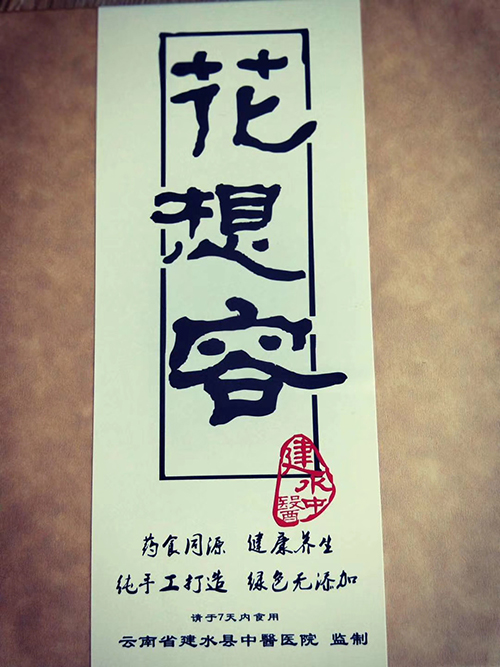 花想容
建水中醫
药食同源 健康养生
纯手工打造 绿色无添加
请于7天内食用
云南省建水县中醫医院 监制